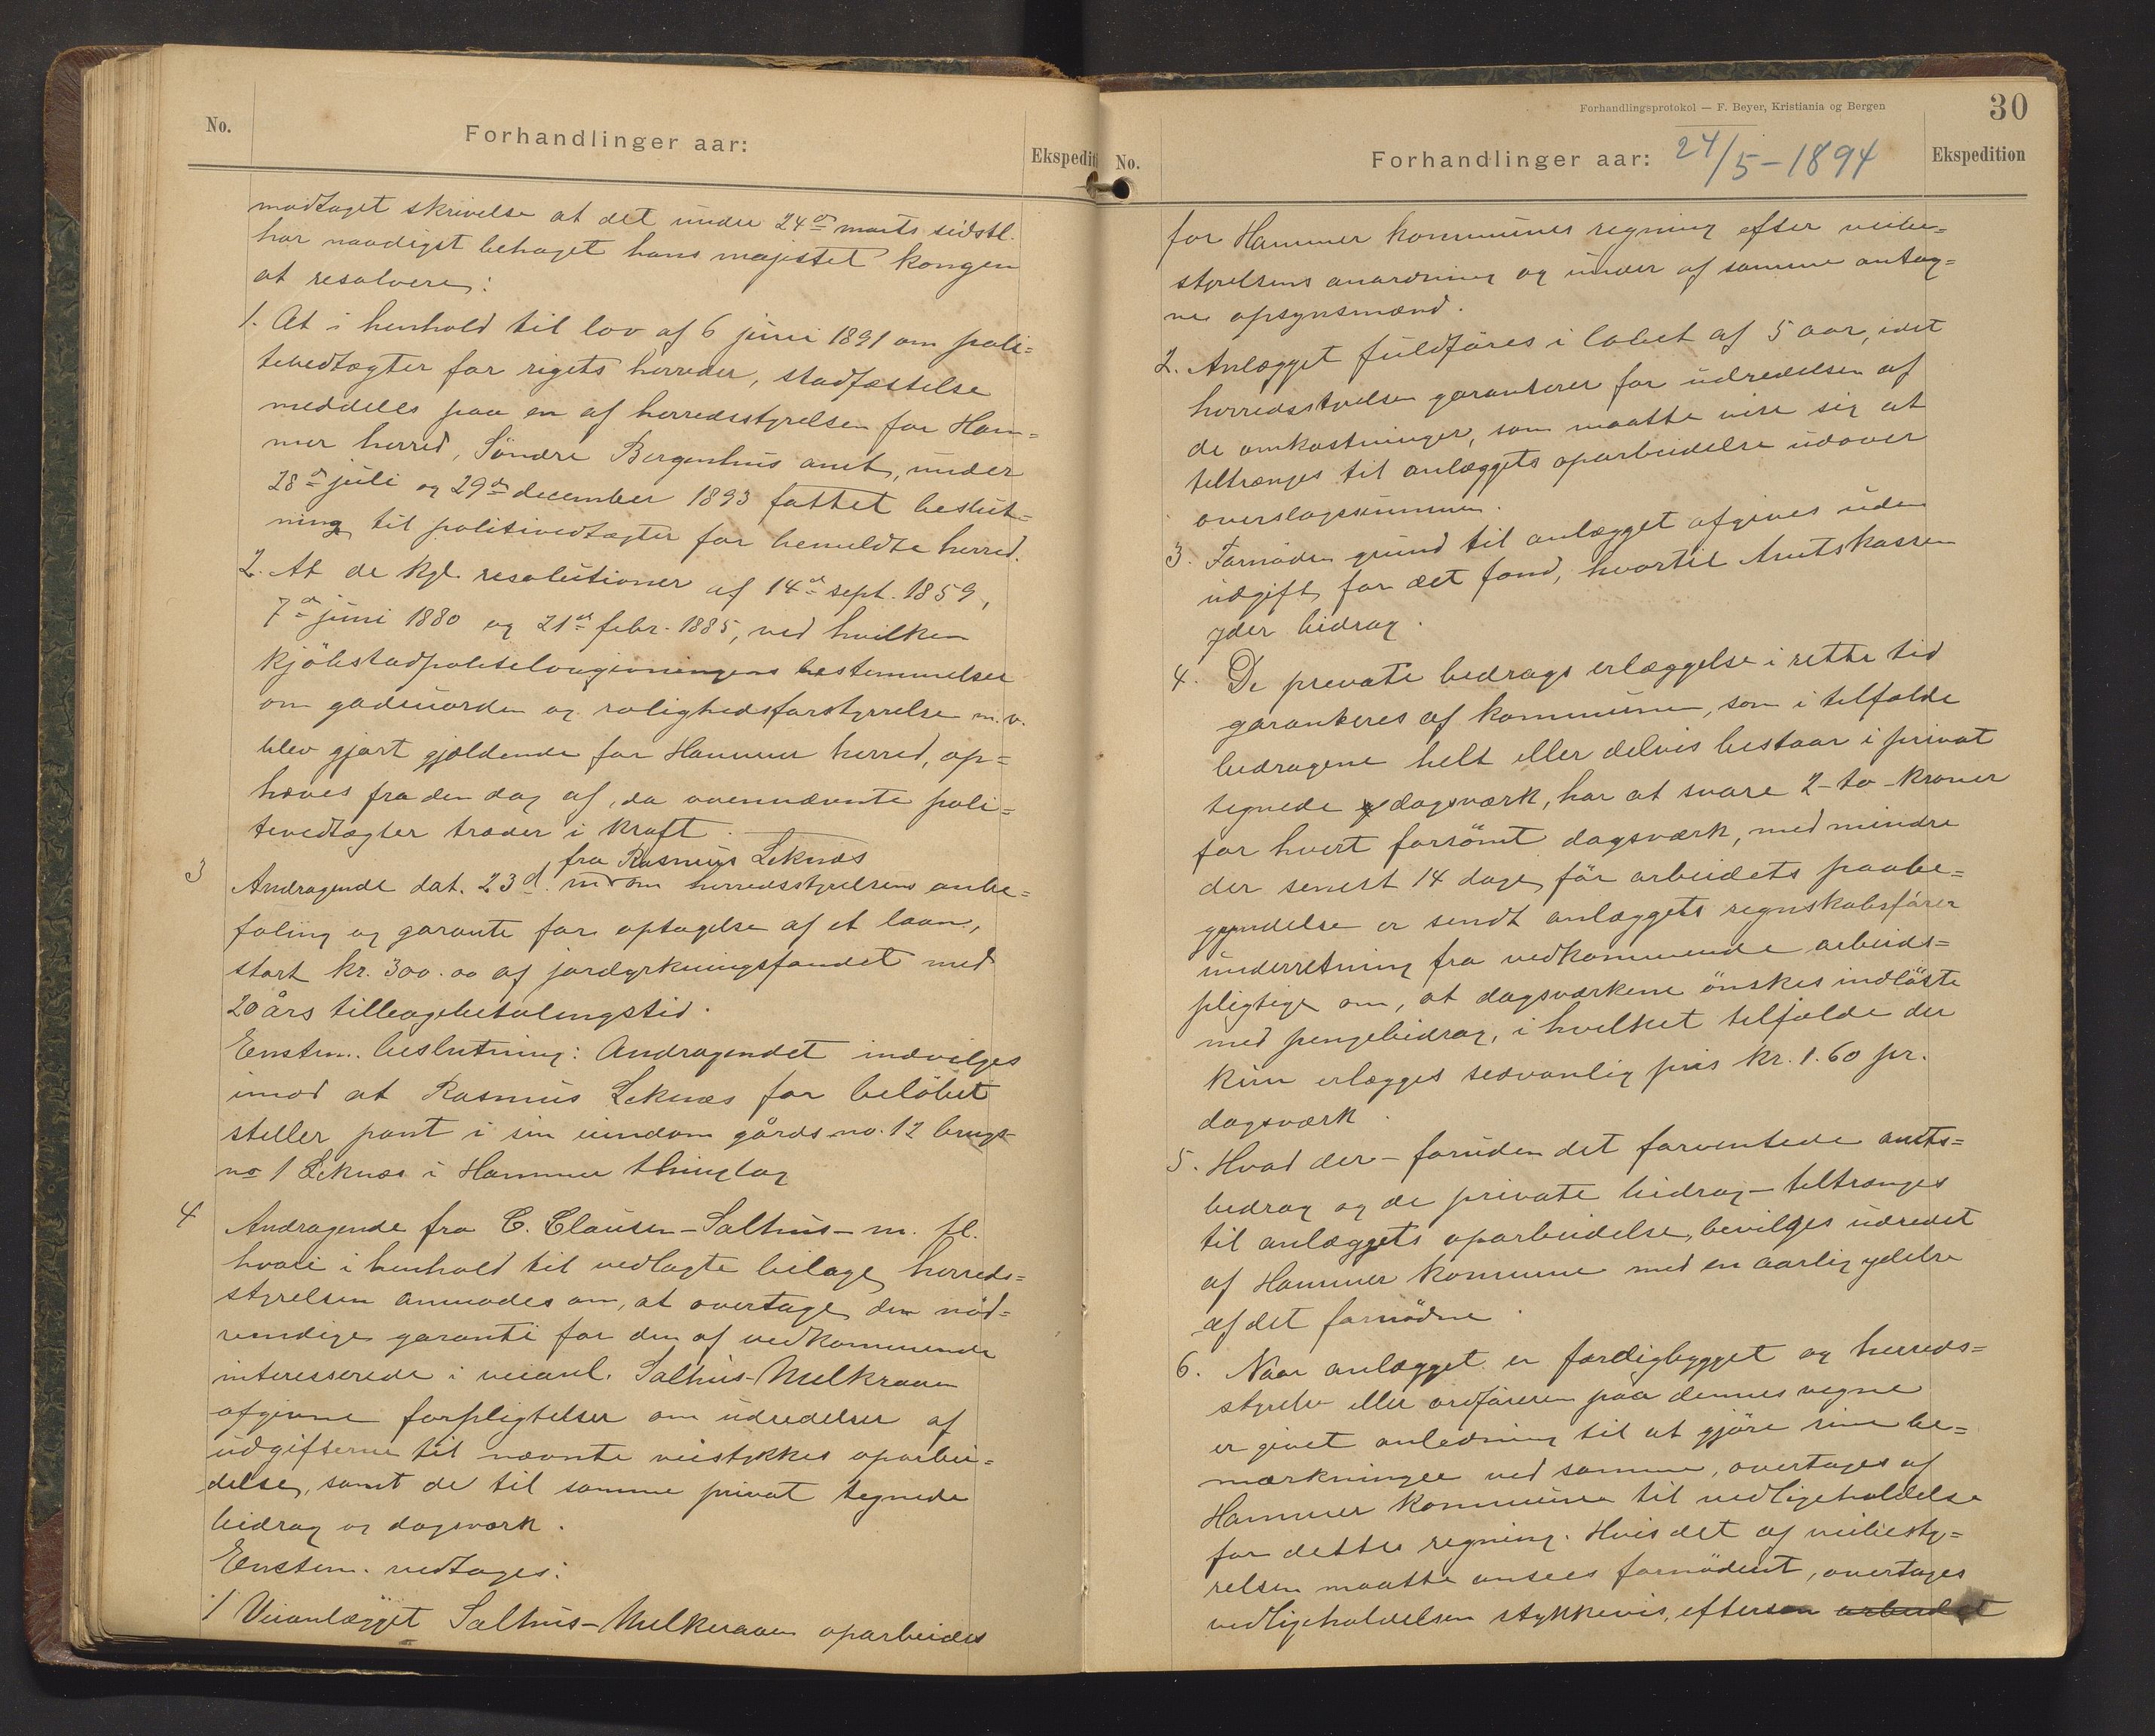 No.
Forhandlinger aar:
Ekspedit
modtaget skrivelse at det under 24de marts sidstl.
har naadigst behaget hans majestet kongen
at resolvere:
1. At i henhold til lov af 6 juni 1891 om poli=
tivedtægter for rigets herreder, stadfæstelse
meddeles paa en af herredsstyrelsen for Ham=
mer herred, Söndre Bergenhus amt, under
28de juli og 29de december 1893 fattet beslut=
ning til politivedtægter for bemeldte herred.
2. At de kgl. resolutioner af 14de sept. 1859,
7de juni 1880 og 21de febr. 1885, ved hvilken
kjöbstadpolitilovgivningens bestemmelser
om gadeuorden og rolighedsforstyrrelse m.v.
blev gjort gjældende for Hammer herred, op=
hæves fra den dag af, da ovennævnte poli=
tivedtægter træder i kraft.
fra Rasmus Leknæs
3 Andragende dat. 23d. m om herredsstyrelsens anbe=
faling og garanti for optagelse af et laan,
stort kr. 300.00 af jordyrkningsfondet med
20 års tilbagebetalingstid.
Enstem. beslutning: Andragendet indvilges
imod at Rasmus Leknæs for belöbet
stiller pant i sin eiendom gårds no. 12 brugs
no 1 Leknæs i Hammer thinglag
4 Andragende fra C. Clausen - Salhus - m. fl.
hvori i henhold til vedlagte bilage, herreds=
styrelsen anmodes om, at overtage den nöd=
vendige garanti for den af vedkommende
interesserede i veianl. Salhus-Melkraaen
afgivne forpligtelser om udredelser af
udgifterne til nævnte veistykkes oparbei=
delse, samt de til samme privat tegnede
bidrag og dagsværk.
Enstem. vedtages:
1 Veianlægget Salhus-Melkraaen oparbeides
Forhandlingsprotokol — F. Beyer, Kristiania og Bergen
30
No.
Forhandlinger aar: 24/5-1894
Ekspedition
for Hammer kommunes regning efter veibe=
styrelsens anordning og under af samme antag=
ne opsynsmænd.
2. Anlægget fuldföres i löbet af 5 aar, idet
herredsstyrelsen garanterer for udredelsen af
de omkostninger, som maatte vise sig at
tiltrænges til anlæggets oparbeidelse udover
overslagssummen.
3. Fornöden grund til anlægget afgives uden
udgift for det fond, hvortil Amtskassen
yder bidrag.
4. De private bidrags erlæggelse i rette tid
garanteres af kommunen, som i tilfælde
bidragene helt eller delvis bestaar i privat
tegnede dagsværk, har at svare 2 - to - kroner
for hvert forsömt dagsværk, med mindre
der senest 14 dage för arbeidets paabe=
gyndelse er sendt anlæggets regnskabsförer
underretning fra vedkommende arbeids=
pligtige om, at dagsværkene önskes indlöste
med pengebidrag, i hvilket tilfælde der
kun erlægges sedvanlig pris kr. 1.60 pr.
dagsværk.
5. Hvad der - foruden det forventede amts=
bidrag og de private bidrag - tiltrænges
til anlæggets oparbeidelse, bevilges udredet
af Hammer kommune med en aarlig ydelse
af det fornödne.
6. Naar anlægget er færdigbygget og herreds=
styrelse eller ordföreren paa dennes vegne
er givet anledning til at gjöre sine be=
mærkninger ved samme, overtages af
Hammer kommune til vedligeholdelse
for dettes regning. Hvis det af veibesty=
relsen maatte ansees fornödent, overtages
vedligeholdelsen stykkevis, eftersom arbeidet